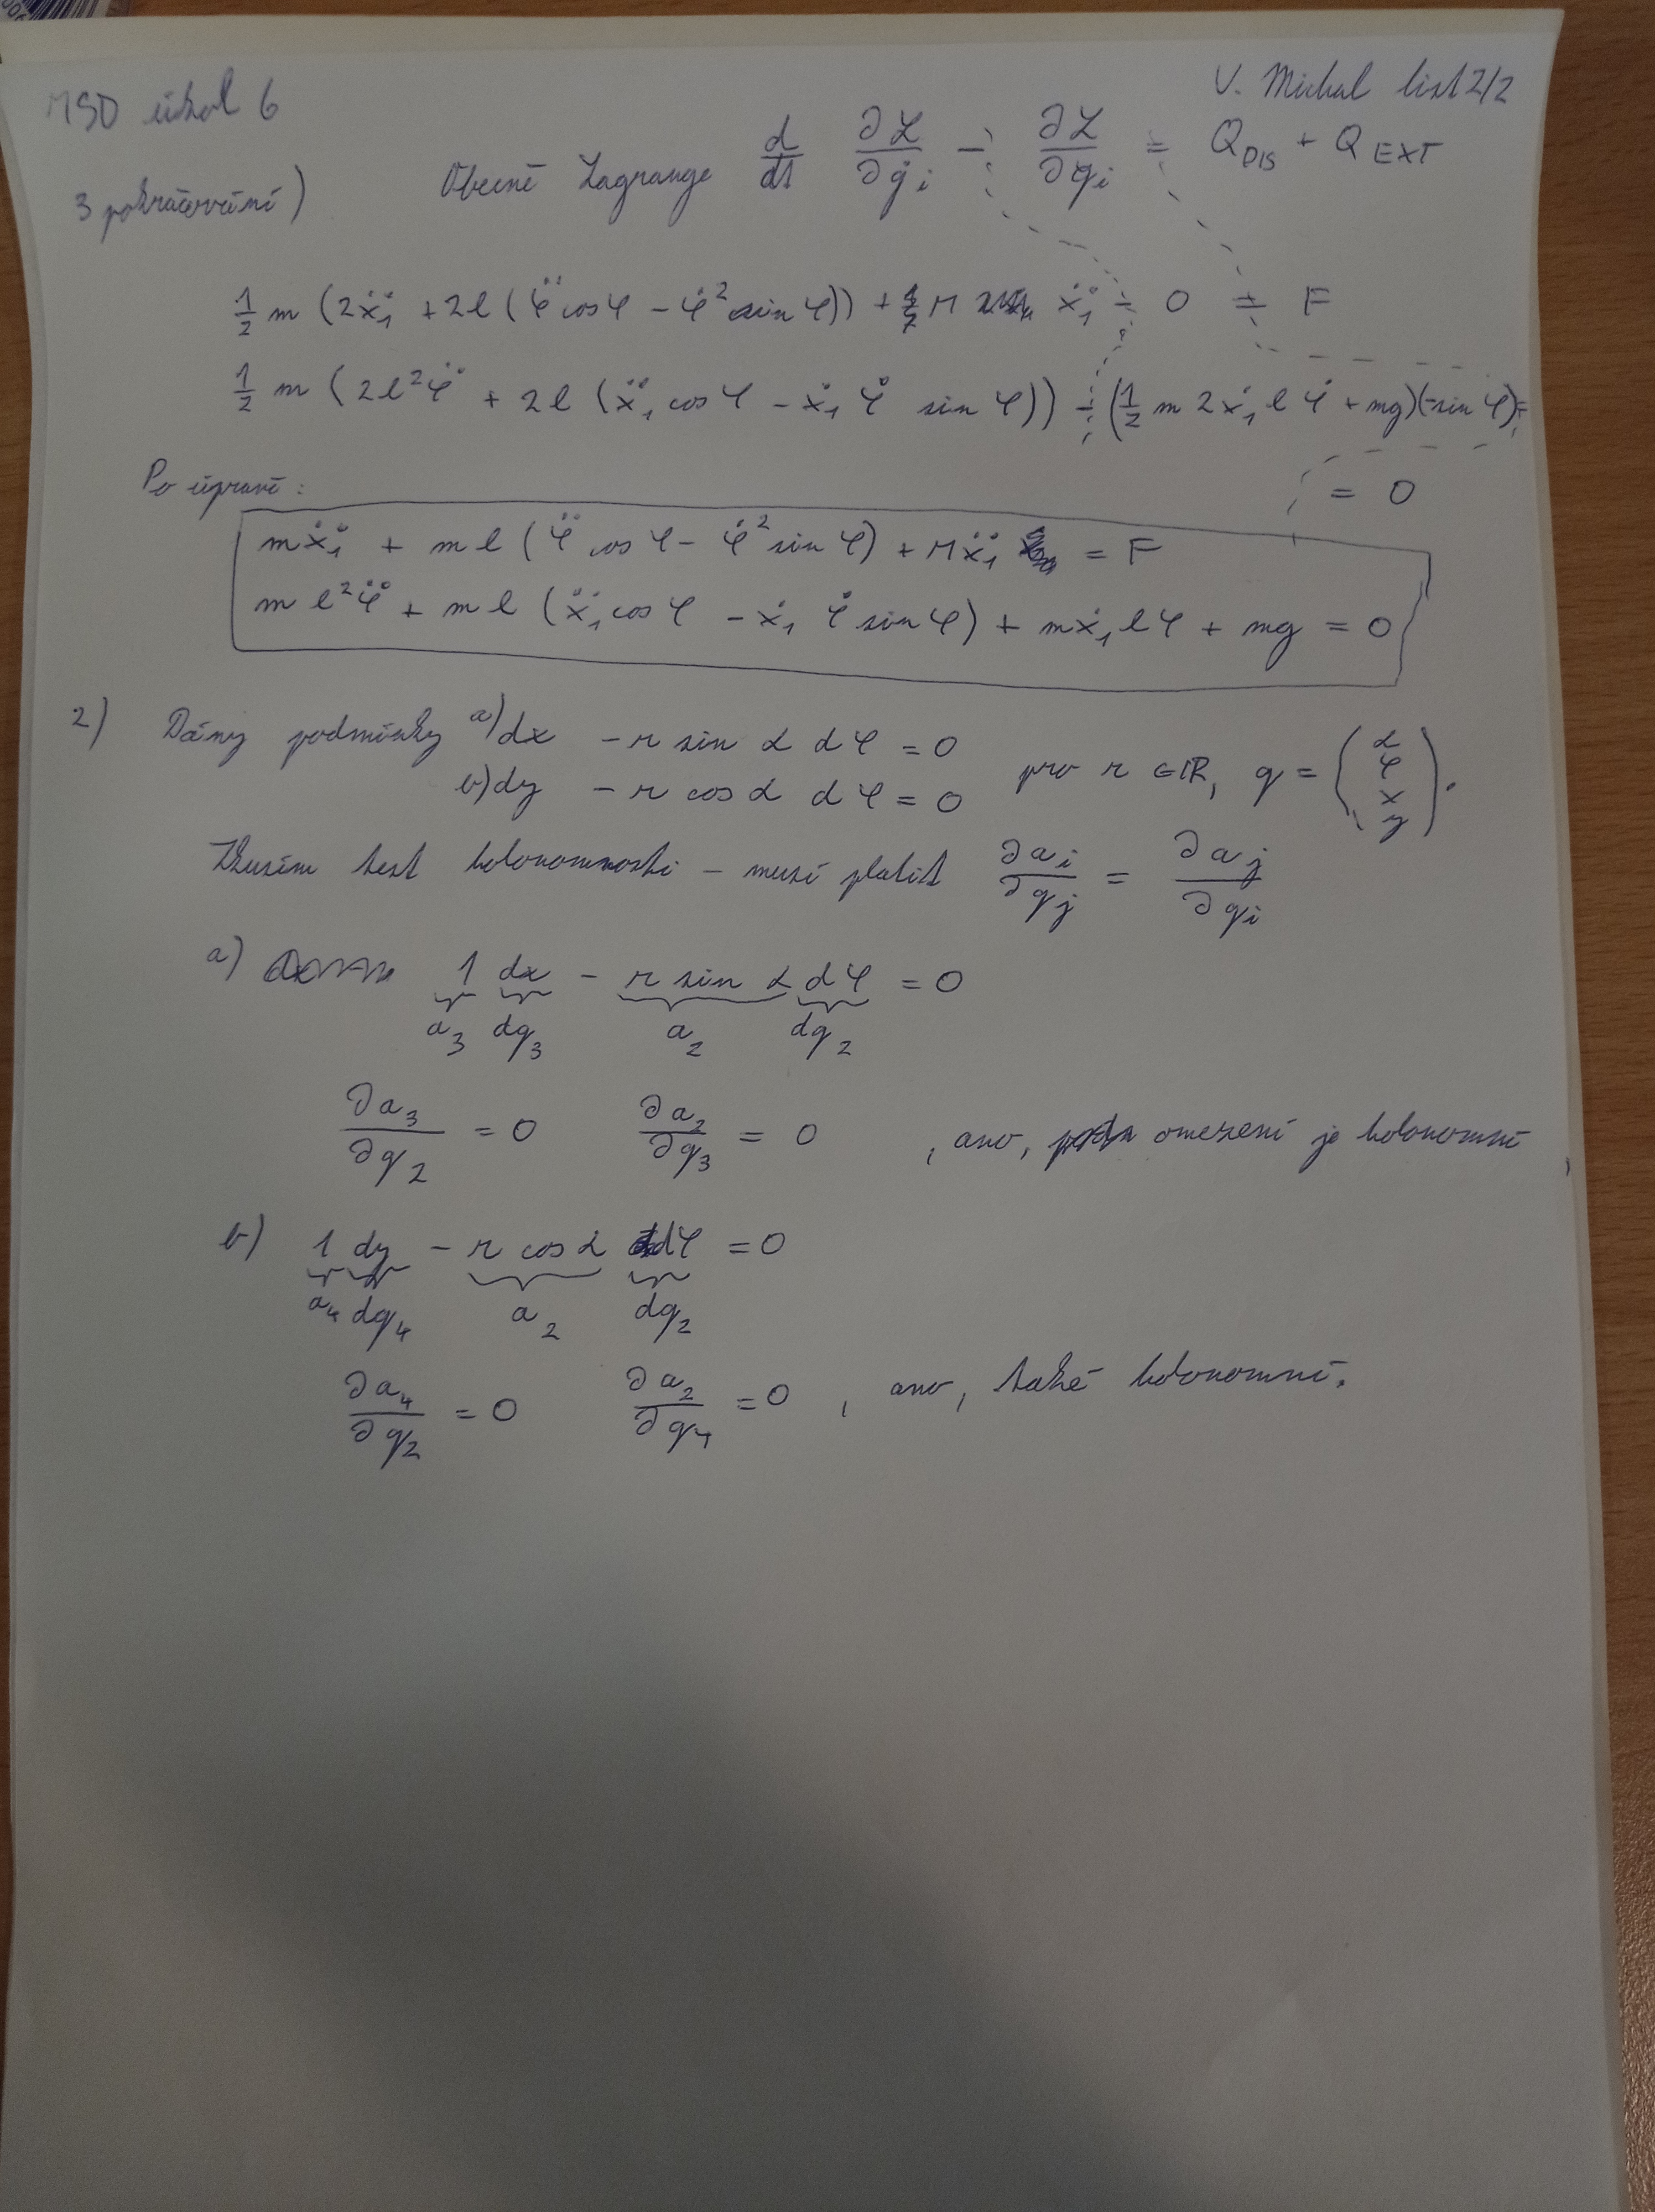 MSD úkol 6
V. Michal list 2/2
3 pokračování) Obecně Lagrange d/dt ∂L/∂q̇i − ∂L/∂qi = Q_DIS + Q_EXT
1/2 m (2ẍ₁ + 2l (φ̈ cosφ − φ̇² sinφ)) + M ẍ₁ − 0 = F
1/2 m (2l²φ̈ + 2l (ẍ₁ cosφ − ẋ₁ φ̇ sinφ)) − (1/2 m 2ẋ₁ l φ̇ + mg)(−sinφ) =
= 0
Po úpravě:
mẍ₁ + ml (φ̈ cosφ − φ̇² sinφ) + Mẍ₁ = F
ml²φ̈ + ml (ẍ₁ cosφ − ẋ₁ φ̇ sinφ) + mẋ₁ lφ + mg = 0
2) Dány podmínky a) dx − r sin α dφ = 0
b) dy − r cos α dφ = 0 pro r ∈ ℝ, q = (α φ x y).
Zkusím test holonomnosti – musí platit ∂ai/∂qj = ∂aj/∂qi
a) 1 dx − r sin α dφ = 0
a₃ dq₃ a₂ dq₂
∂a₃/∂q₂ = 0 ∂a₂/∂q₃ = 0 , ano, omezení je holonomní,
b) 1 dy − r cos α dφ = 0
a₄ dq₄ a₂ dq₂
∂a₄/∂q₂ = 0 ∂a₂/∂q₄ = 0 , ano, také holonomní.